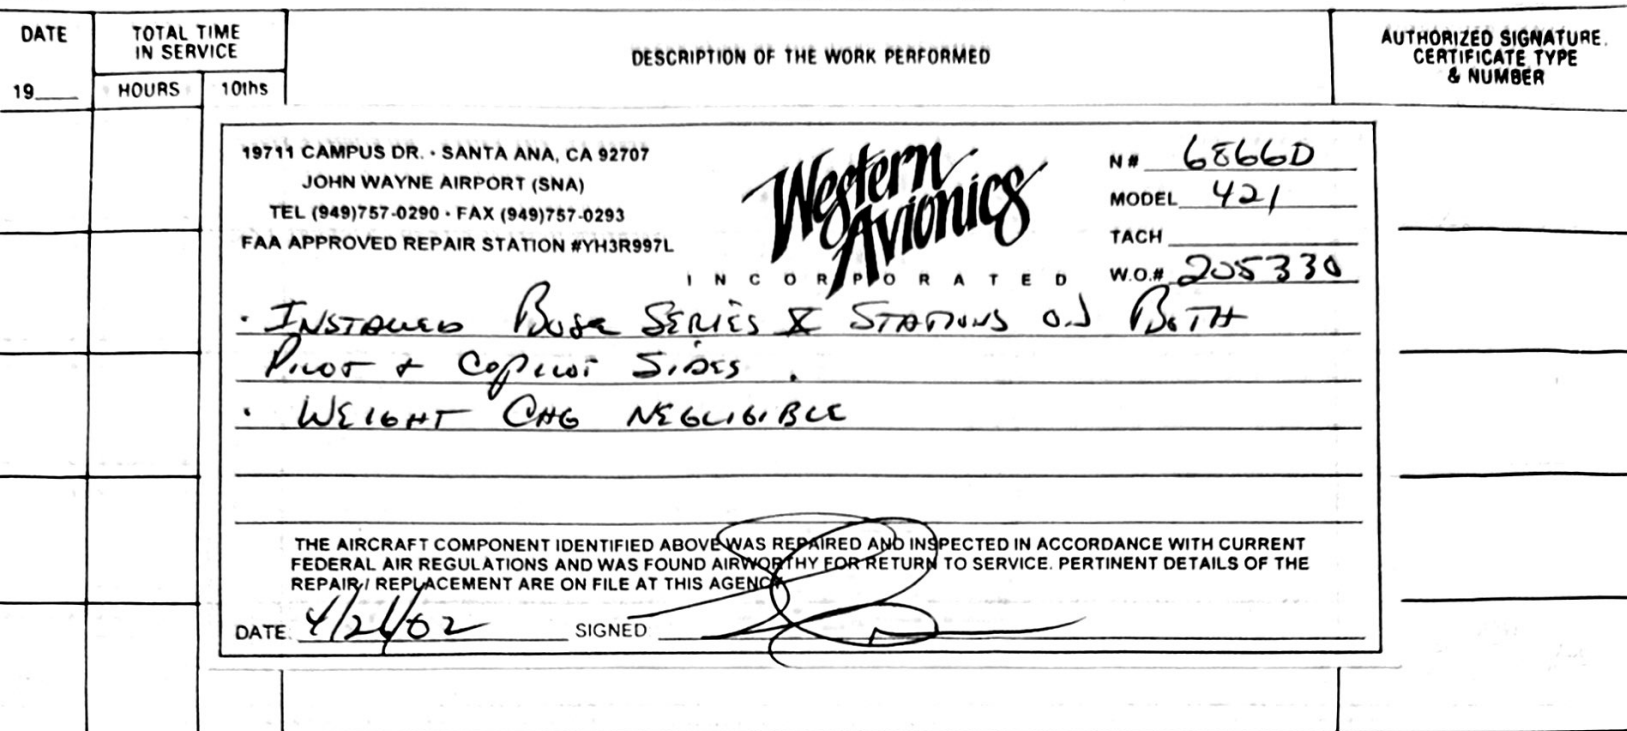 DATE
TOTAL TIME
IN SERVICE
DESCRIPTION OF THE WORK PERFORMED
AUTHORIZED SIGNATURE,
CERTIFICATE TYPE
& NUMBER
19___
HOURS
10ths
19711 CAMPUS DR. · SANTA ANA, CA 92707
JOHN WAYNE AIRPORT (SNA)
TEL (949)757-0290 · FAX (949)757-0293
FAA APPROVED REPAIR STATION #YH3R997L
Western
Avionics
INCORPORATED
N# 6866D
MODEL 421
TACH
W.O.# 205330
· INSTALLED BOSE SERIES X STATIONS ON BOTH
PILOT + COPILOT SIDES.
· WEIGHT CHG NEGLIGIBLE
THE AIRCRAFT COMPONENT IDENTIFIED ABOVE WAS REPAIRED AND INSPECTED IN ACCORDANCE WITH CURRENT
FEDERAL AIR REGULATIONS AND WAS FOUND AIRWORTHY FOR RETURN TO SERVICE. PERTINENT DETAILS OF THE
REPAIR / REPLACEMENT ARE ON FILE AT THIS AGENCY
DATE: 4/26/02 SIGNED